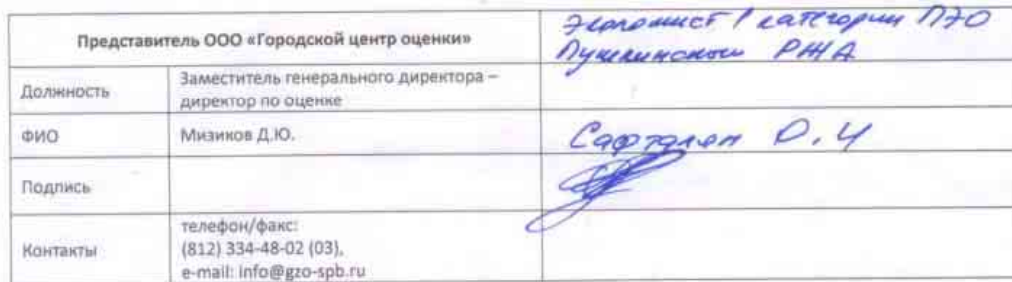 Представитель ООО «Городской центр оценки»
Экономист 1 категории ПЭО
Пушкинском РЖА
Должность
Заместитель генерального директора –
директор по оценке
ФИО
Мизиков Д.Ю.
О.И
Подпись
Контакты
телефон/факс:
(812) 334-48-02 (03),
e-mail: info@gzo-spb.ru